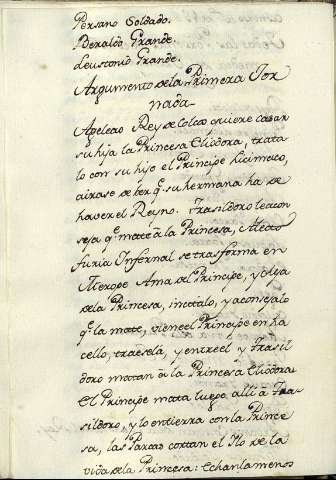 Persano Soldado.
Beraldo Grande.
Leustonio Grande.
Argumento de la Primera Jor
nada.
Ageleao Rey de Colcos quiere casar
su hija la Princesa Cliodora, trata
lo con su hijo el Principe
airase de ber q.e su hermana ha de
haver el Reyno. Trasildoro le acon
seja q.e mate à la Princesa,
furia Infernal se trasforma en
Merope Ama del Principe, y
de la Princesa, incitalo, y aconsejalo
q.e la mate, viene el Principe en ha
cello, traesela, y entre el y Trasil
doro matan à la Princesa Cliodora:
El Principe mata luego alli à Tra
sildoro, y lo entierra con la Prince
sa, las Parcas cortan el Ilo de la
vida de la Princesa: echanla menos